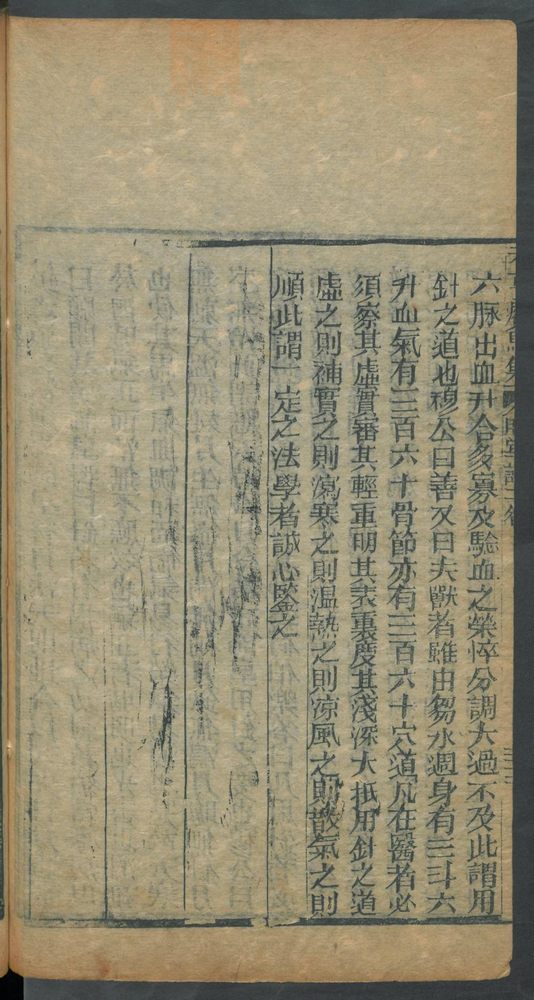 六脉出血升合多寡及驗血之榮悴分調太過不及此謂用
針之道也穆公曰善又曰夫獸者雖由芻水週身有三斗六
升血氣有三百六十骨節亦有三百六十穴道凡在醫者必
須察其虛實審其輕重明其表裏度其淺深大抵用針之道
虛之則補實之則瀉寒之則温熱之則凉風之則散氣之則
順此謂一定之法學者誠心鑒之